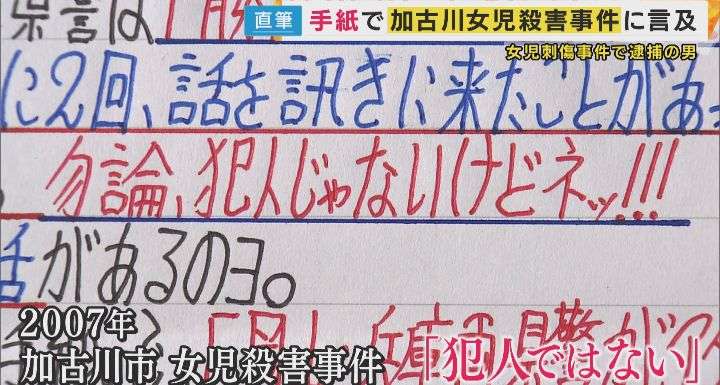 直筆 手紙で加古川女児殺害事件に言及
女児刺傷事件で逮捕の男
に2回、話を訊きに来たことがあ
勿論、犯人じゃないけどネッ!!!
話があるのヨ。
2007年
加古川市 女児殺害事件
「犯人ではない」